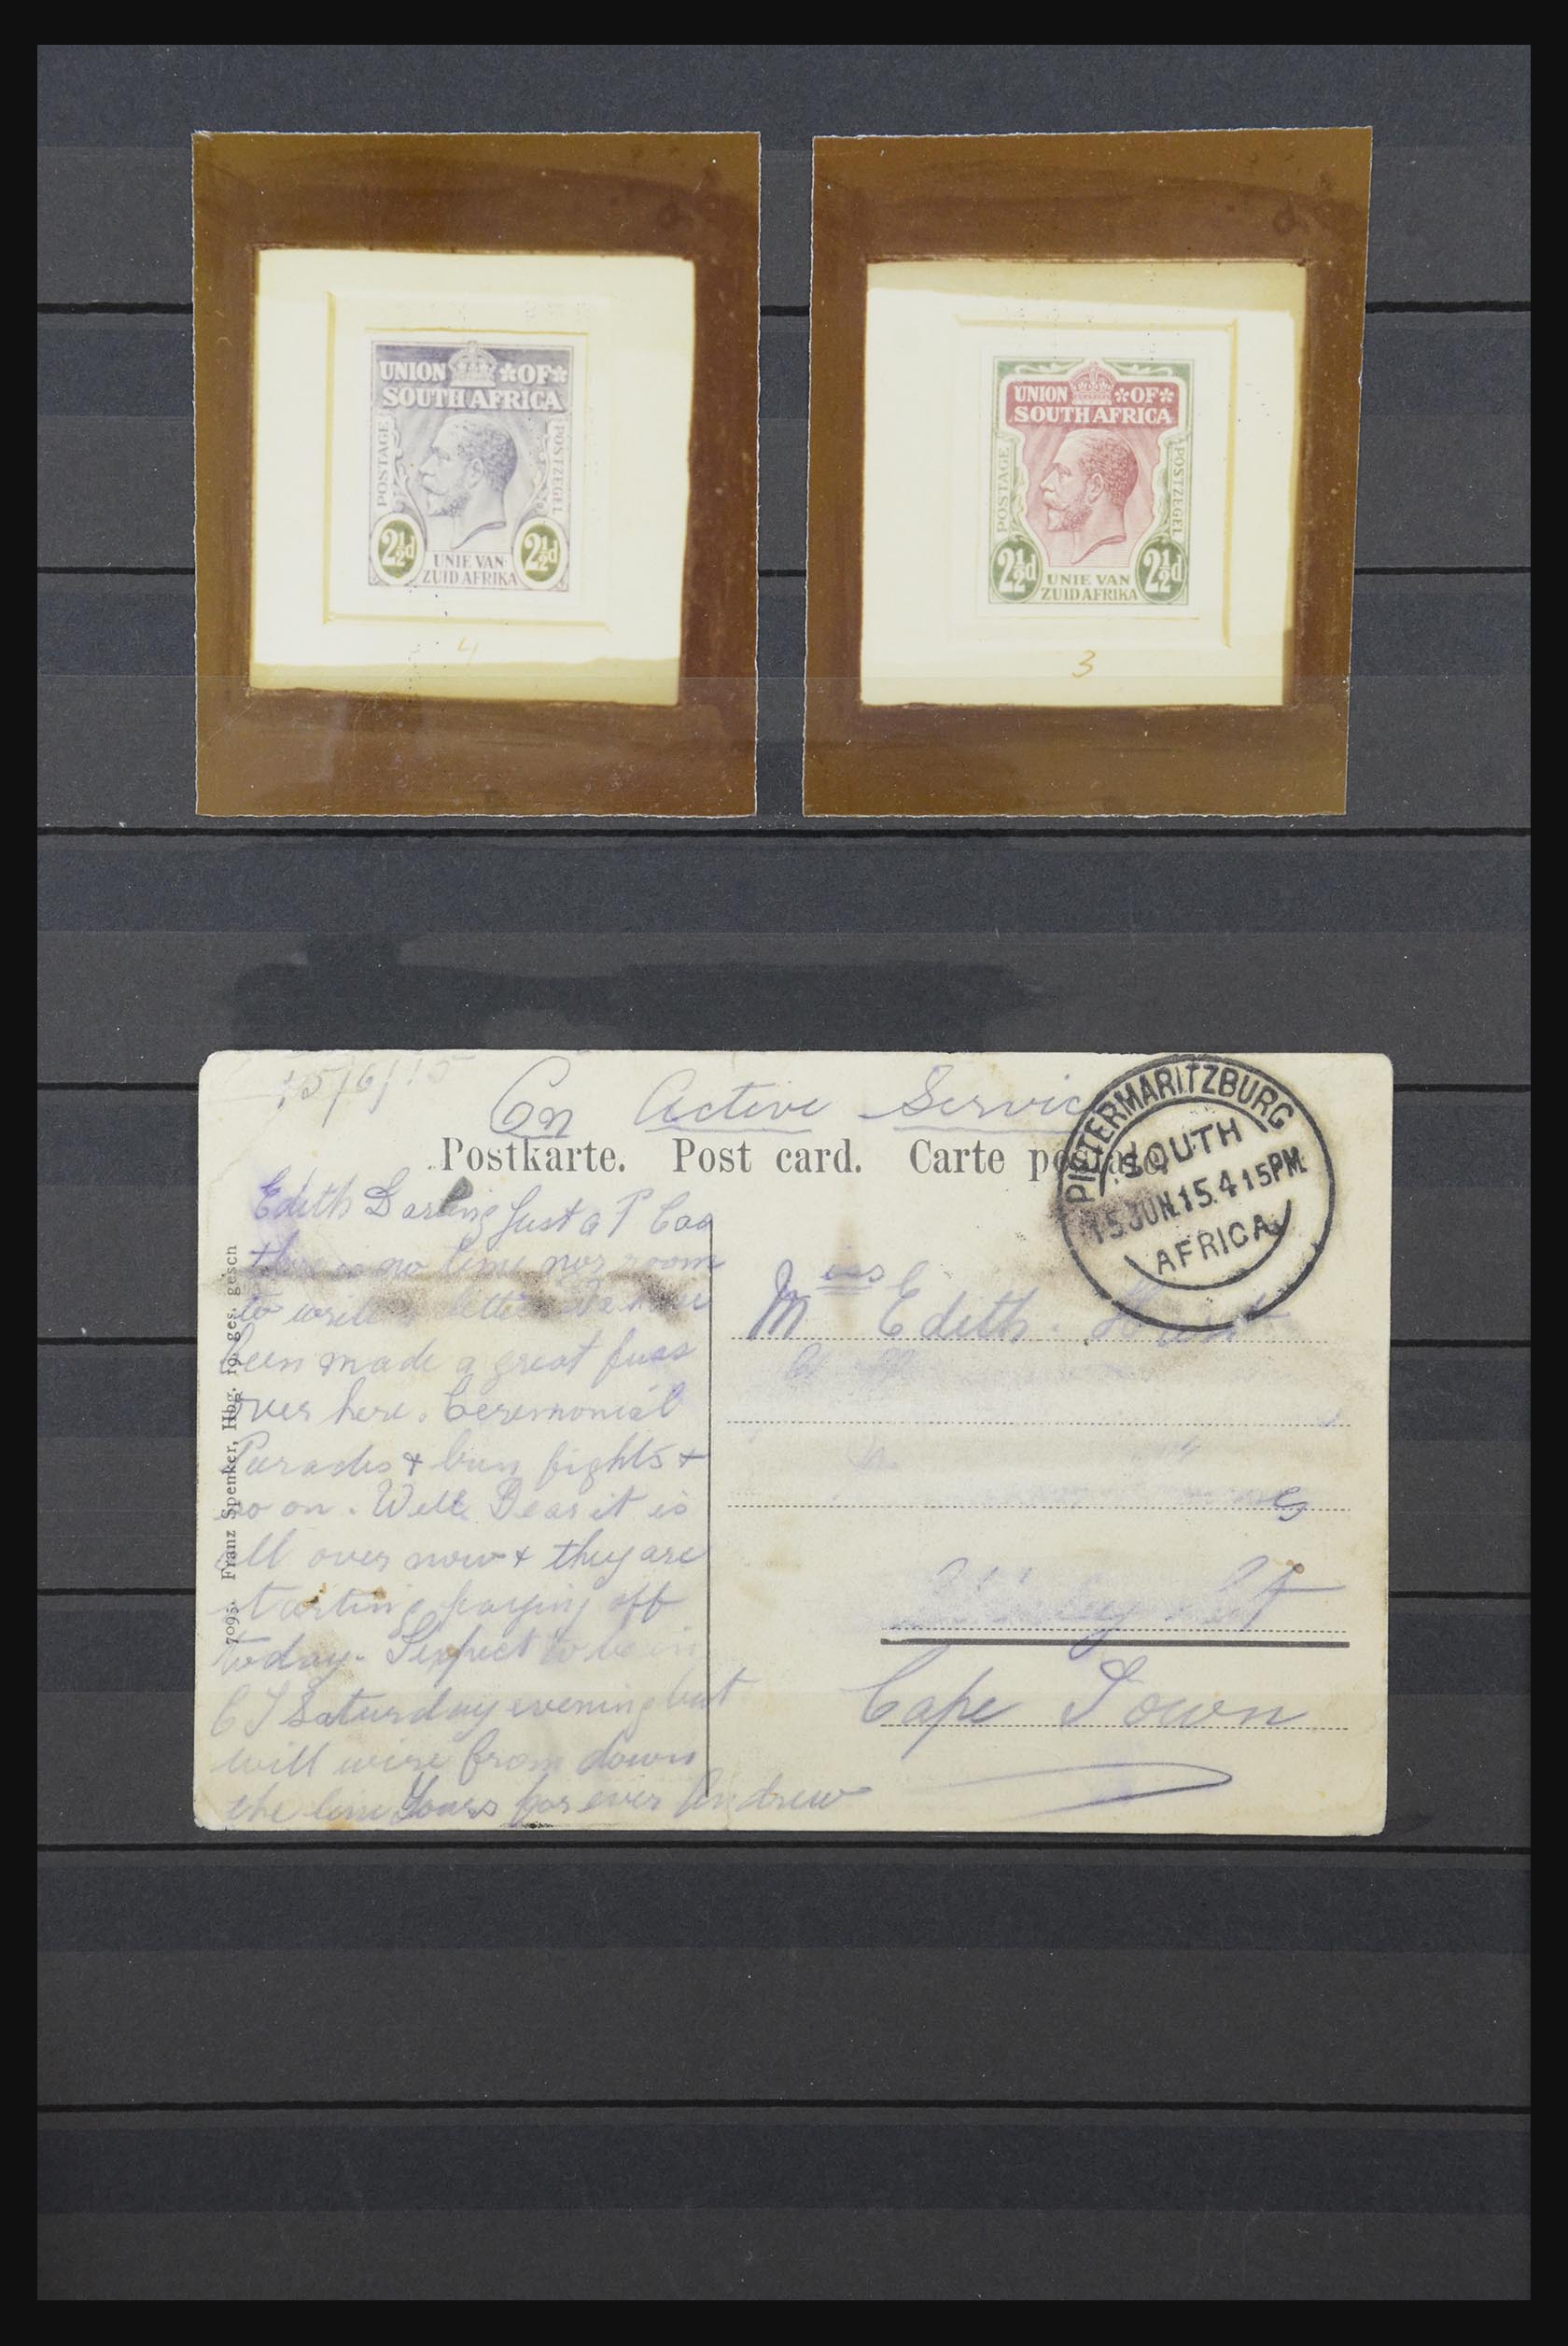 UNION OF
SOUTH AFRICA
POSTAGE
POSTZEGEL
2½d
2½d
UNIE VAN
ZUID AFRIKA
4
UNION OF
SOUTH AFRICA
POSTAGE
POSTZEGEL
2½d
2½d
UNIE VAN
ZUID AFRIKA
3
15/6/15
On Active Service
Postkarte. Post card. Carte postale.
PIETERMARITZBURG
SOUTH
15 JUN.15.4 15PM.
AFRICA
Edith Darling Just a P Car
there is no time nor room
to write a letter We have
been made a great fuss
over here. Ceremonial
Parades & bun fights &
so on. Well Dear it is
all over now & they are
starting paying off
today. I expect to be in
C T Saturday evening but
will wire from down
the line Yours for ever Andrew
7095. Franz Spenker, Hbg. 19. ges. gesch
Miss Edith.
St
Cape Town